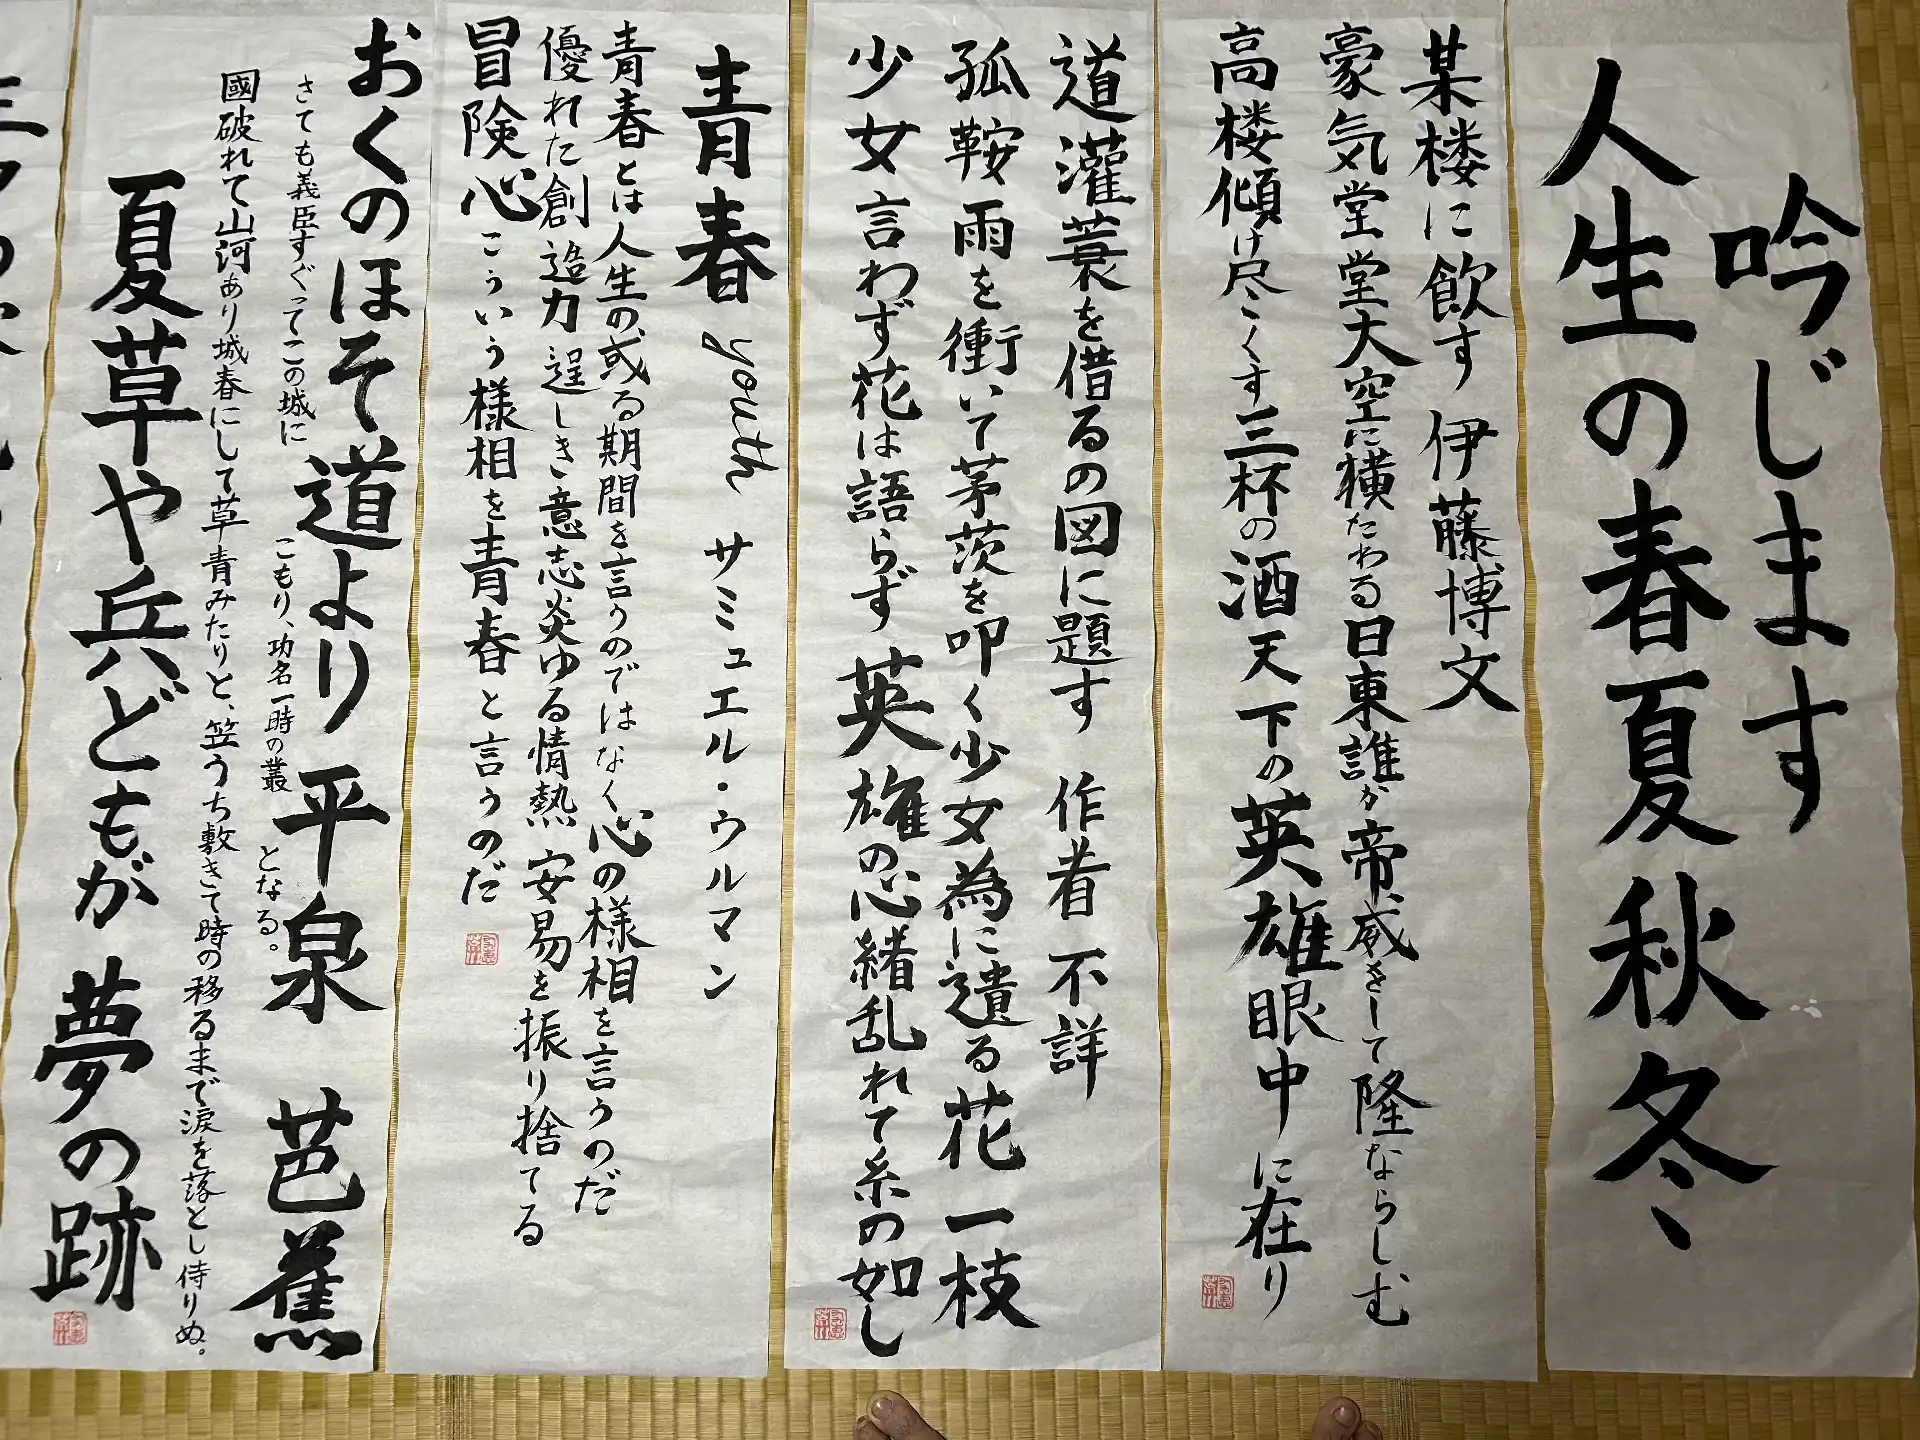 吟じます
人生の春夏秋冬
某楼に飲す 伊藤博文
豪気堂堂大空に横たわる日東誰か帝威をして隆ならしむ
高楼傾け尽くす三杯の酒天下の英雄眼中に在り
道灌蓑を借るの図に題す 作者不詳
孤鞍雨を衝いて茅茨を叩く少女為に遺る花一枝
少女言わず花は語らず英雄の心緒乱れて糸の如し
青春 youth サミュエル・ウルマン
青春とは人生の或る期間を言うのではなく心の様相を言うのだ
優れた創造力逞しき意志炎ゆる情熱安易を振り捨てる
冒険心こういう様相を青春と言うのだ
おくのほそ道より 平泉 芭蕉
さても義臣すぐってこの城に こもり、功名一時の叢 となる。
國破れて山河あり城春にして草青みたりと、笠うち敷きて時の移るまで涙を落とし侍りぬ。
夏草や兵どもが夢の跡